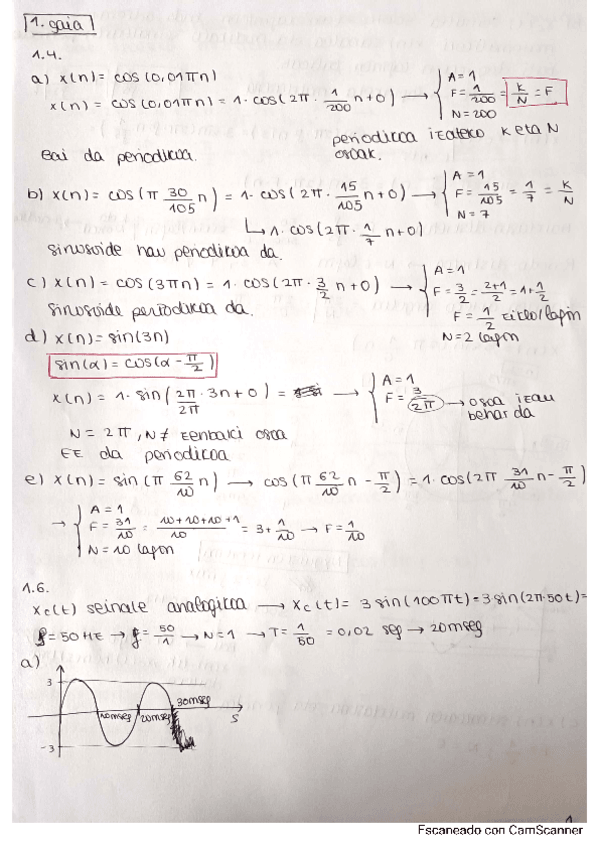 1. gaia
1.4.
a) x(n) = cos(0,01πn)
x(n) = cos(0,01πn) = 1·cos(2π · 1/200 n+0) → { A = 1
F = 1/200 = K/N = F
N = 200
periodikoa izateko K eta N
osoak.
Bai da periodikoa.
b) x(n) = cos(π 30/105 n) = 1·cos(2π · 15/105 n+0) → { A = 1
F = 15/105 = 1/7 = K/N
N = 7
↳ 1·cos(2π · 1/7 n+0)
Sinusoide hau periodikoa da.
c) x(n) = cos(3πn) = 1·cos(2π · 3/2 n+0) → { A = 1
F = 3/2 = 2+1/2 = 1+1/2
F = 1/2 ziklo/lagin
N = 2 lagin
Sinusoide periodikoa da.
d) x(n) = sin(3n)
sin(α) = cos(α - π/2)
x(n) = 1·sin(2π/2π · 3n+0) = → { A = 1
F = 3/2π → osoa izan
behar da
N = 2π, N ≠ zenbaki osoa
EZ da periodikoa
e) x(n) = sin(π 62/10 n) → cos(π 62/10 n - π/2) = 1·cos(2π 31/10 n - π/2)
→ { A = 1
F = 31/10 = 10+10+10+1/10 = 3+1/10 → F = 1/10
N = 10 lagin
1.6.
xc(t) seinale analogikoa → xc(t) = 3 sin(100πt) = 3 sin(2π·50t) =
f = 50 Hz → f = 50/1 → N = 1 → T = 1/50 = 0,02 seg → 20mseg
a)
3
30mseg
10mseg 20mseg S
-3
1
Escaneado con CamScanner